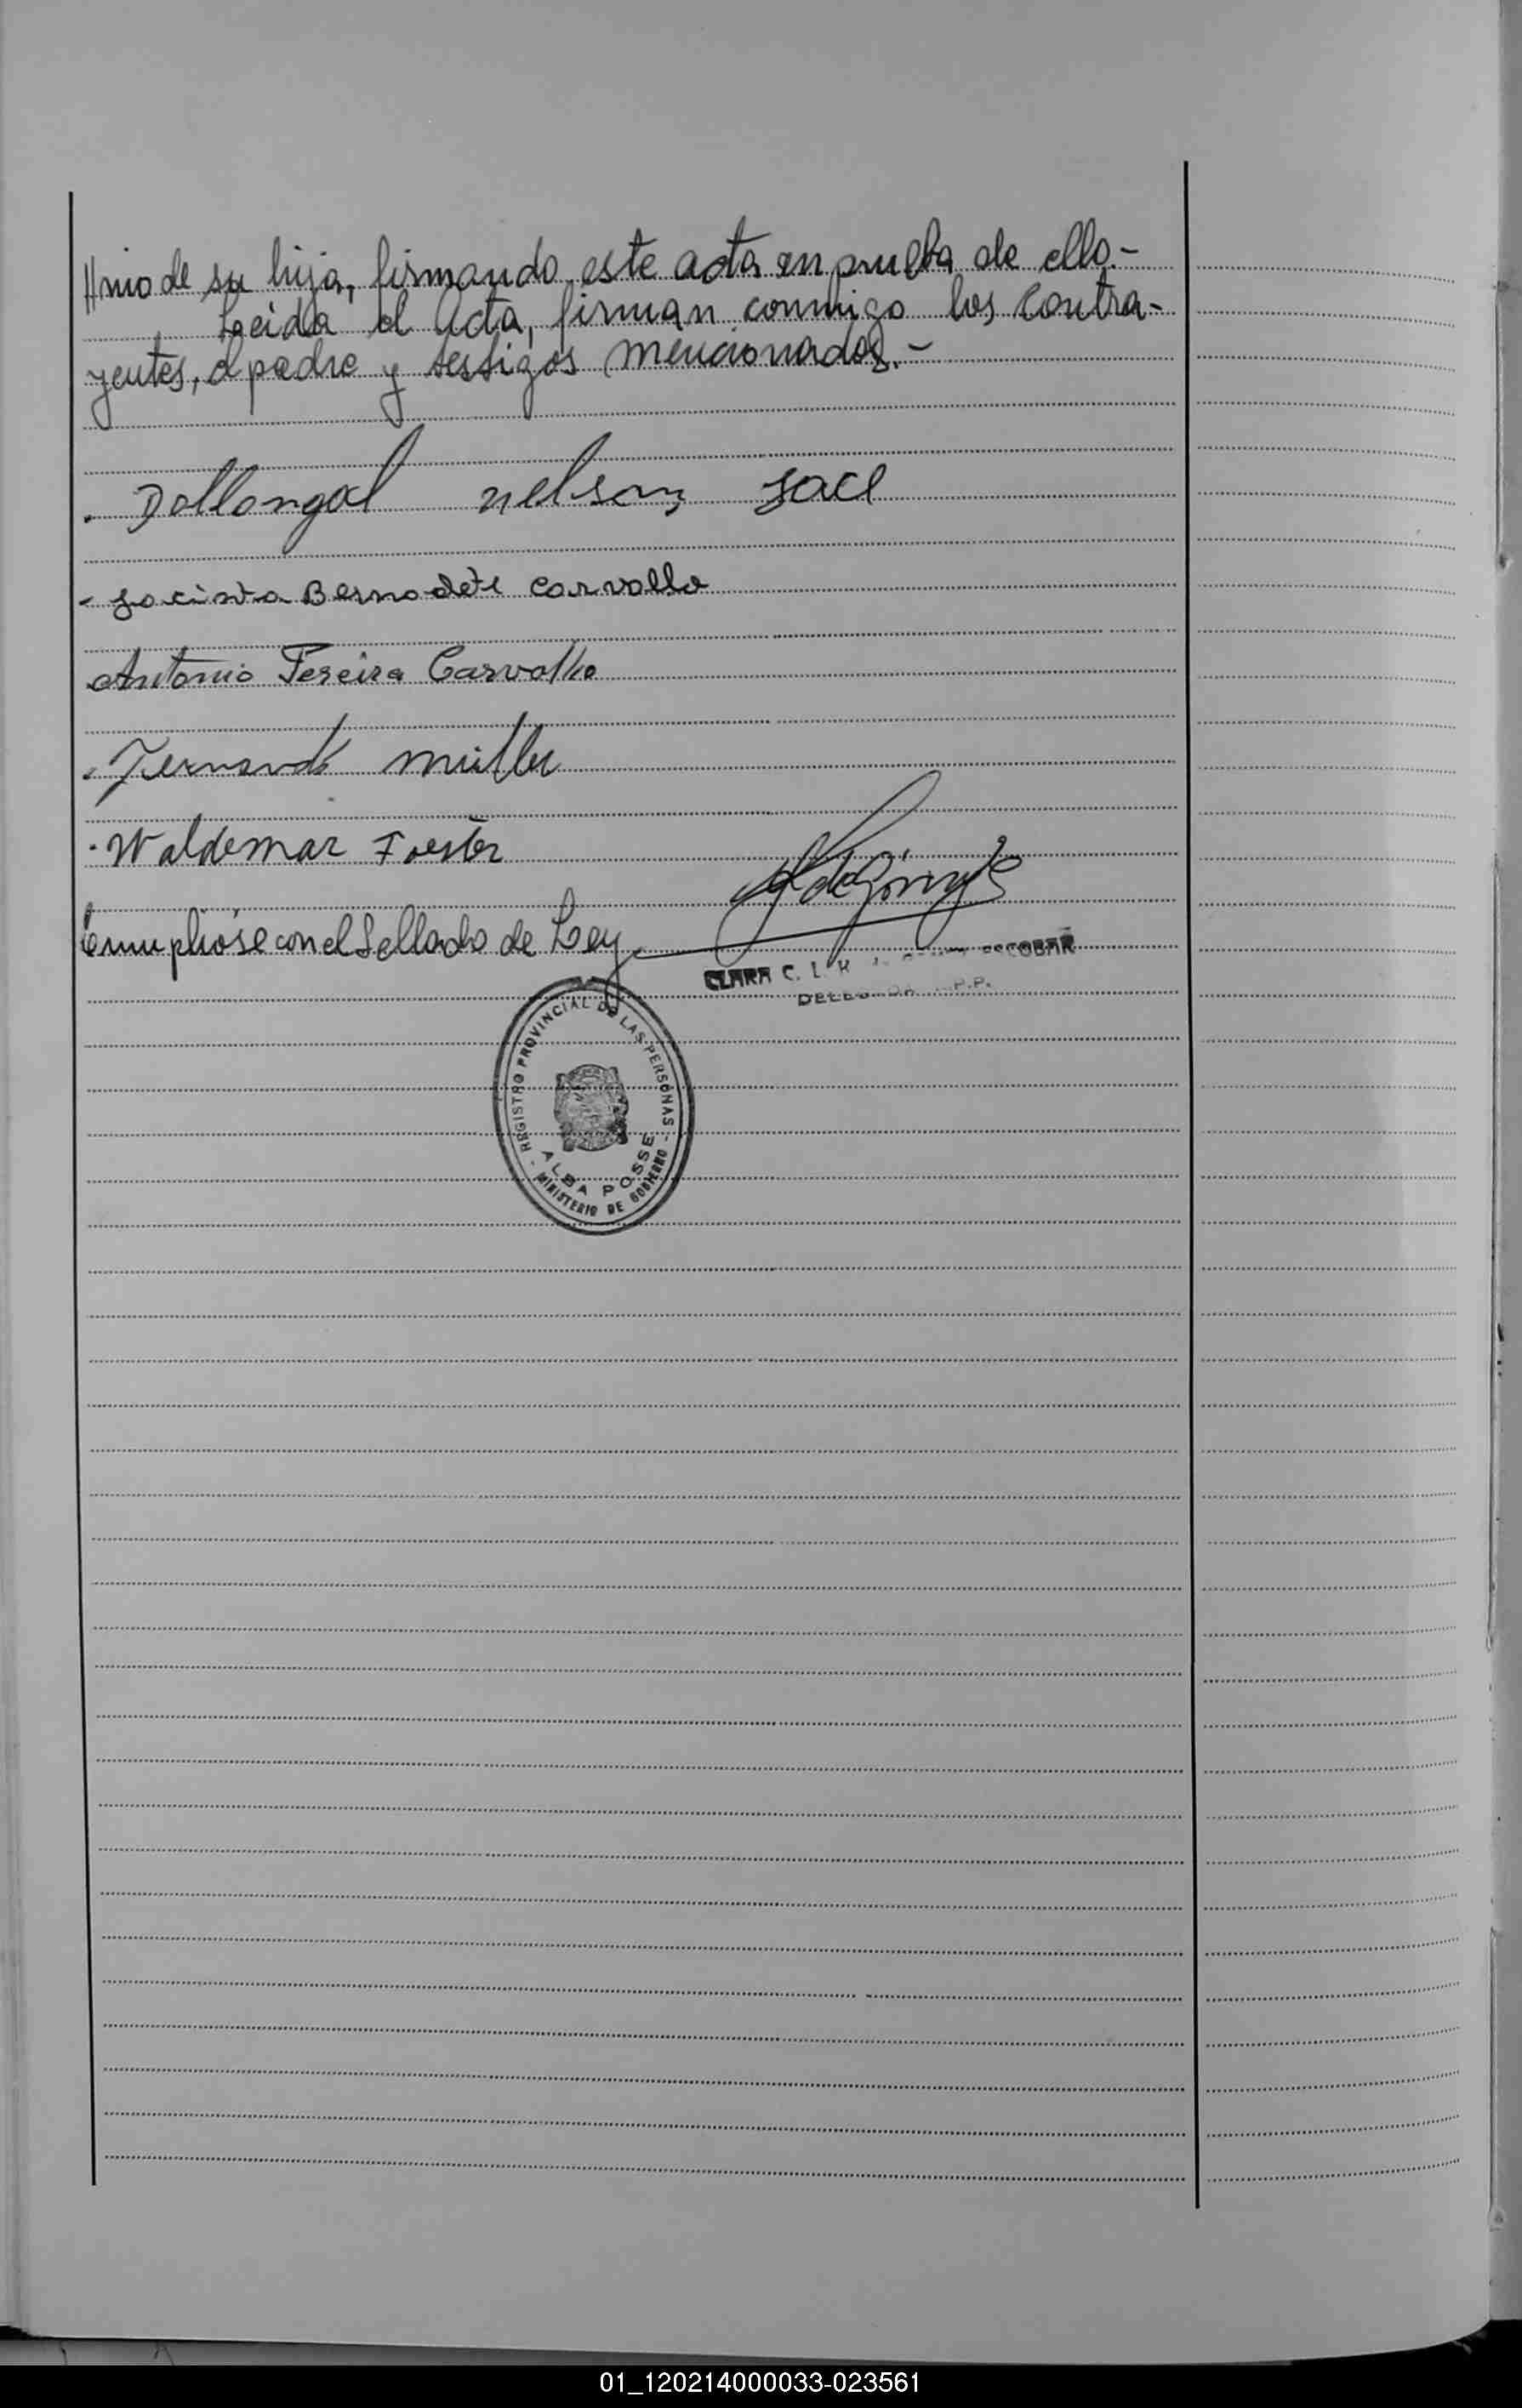 //nio de su hija, firmando este acta en prueba de ello.-
Leida el Acta, firman conmigo los Contra-
yentes, el padre y testigos mencionados.-
Dollongal nelson jose
- Jacinta Bernadete Carvallo
Antonio Pereira Carvalho
Fernando Muller
Waldemar Foester
Cumpliose con el Sellado de Ley
CLARA C. ESCOBAR
REGISTRO PROVINCIAL DE LAS PERSONAS -
ALBA POSSE
- MINISTERIO DE GOBIERNO -
01_120214000033-023561